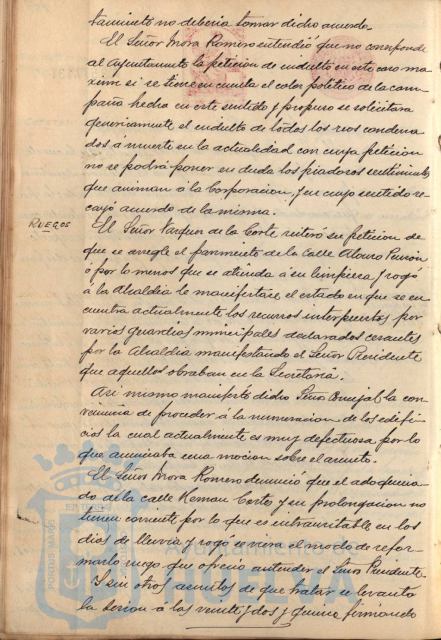 tamiento no debería tomar dicho acuerdo.
El Señor Mora Romero entendió que no corresponde
al Ayuntamiento la petición de indulto en este caso ma-
xime si se tiene en cuenta el color político de la cam-
paña hecha en este sentido y propuso se solicitara
genericamente el indulto de todos los reos condena-
dos á muerte en la actualidad con cuya petición
no se podrá poner en duda los piadosos sentimientos
que animan á la Corporación, y en cuyo sentido re-
cayó acuerdo de la misma.
RUEGOS
El Señor Vazquez de la Corte reiteró su petición de
que se arregle el pavimento de la calle Alonso
ó por lo menos que se atienda á su limpieza y rogó
á la Alcaldía le manifestare el estado en que se en-
cuentra actualmente los recursos interpuestos por
varios guardias municipales declarados cesantes
por la Alcaldía manifestando el Señor Presidente
que aquellos obraban en la Secretaría.
Asi mismo manifestó dicho Señor Concejal la con-
veniencia de proceder á la numeracion de los edifi-
cios la cual actualmente es muy defectuosa por lo
que anunciaba una mocion sobre el asunto.
El Señor Mora Romero denunció que el adoquina-
do de la calle Hernan Cortes y su prolongacion no
tienen corriente por lo que es intransitable en los
dias de lluvia y rogó se viera el modo de refor-
marlo ruego que ofreció atender el Señor Presidente.
Y sin otros asuntos de que tratar se levantó
la sesion á las veinte y dos y quince firmando
Ayuntamiento de
HUELVA